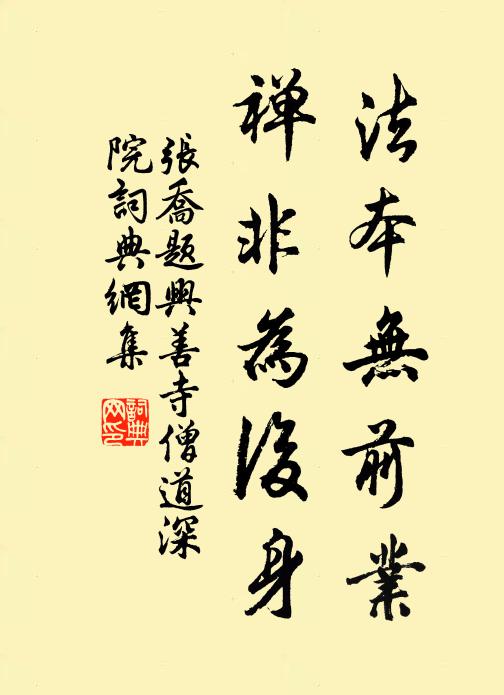 法本無前業
禪非為後身
張喬題興善寺僧道深
院詞典網集
詞典
网印